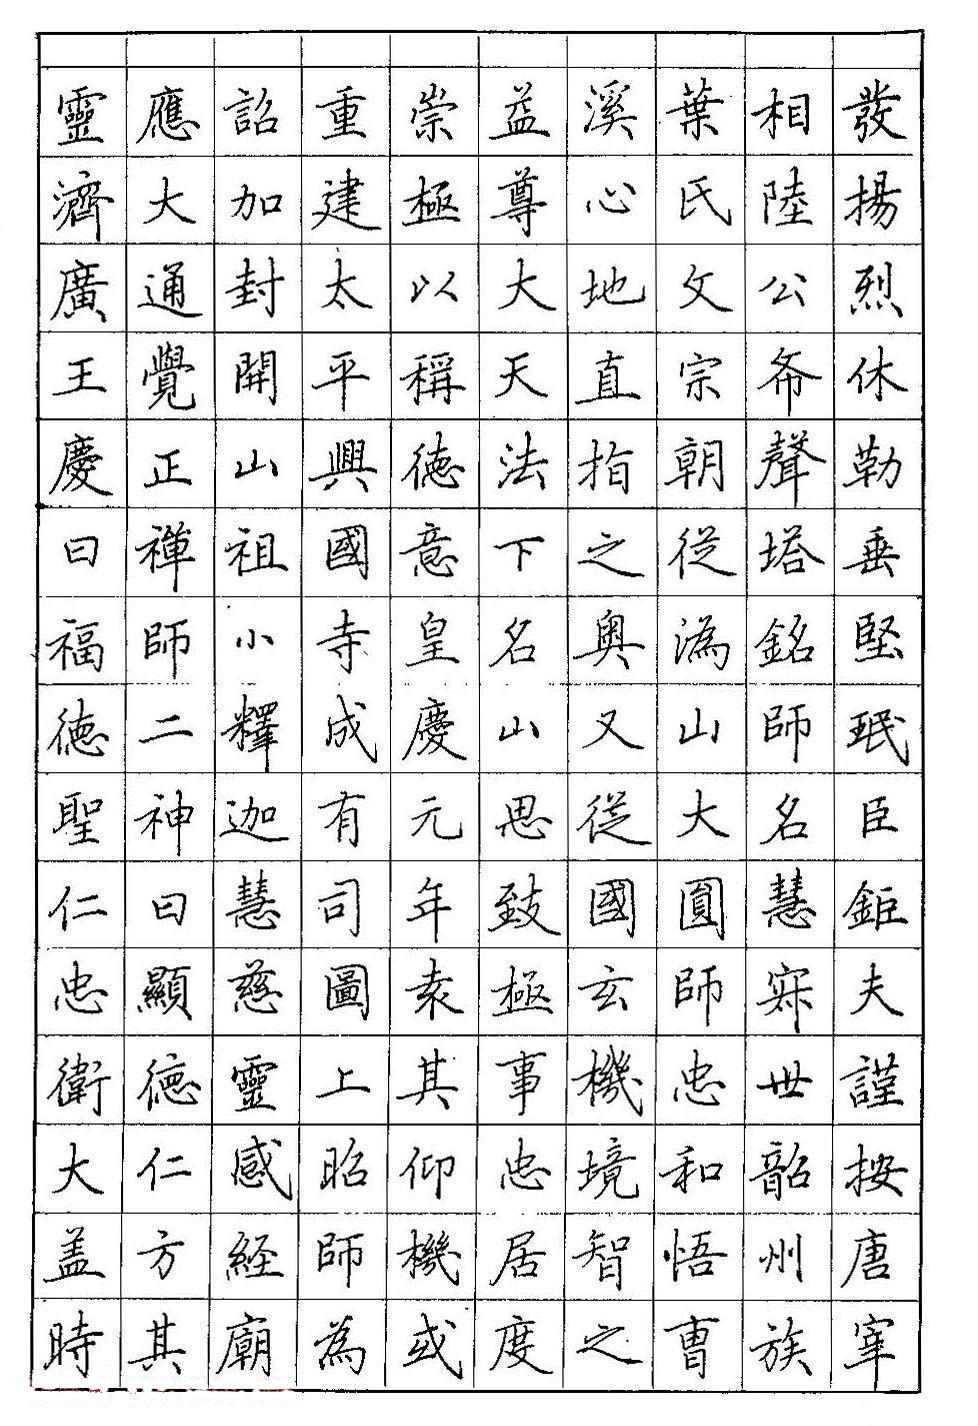 發揚烈休勒垂堅珉臣鉅夫謹按唐宰
相陸公希聲塔銘師名慧寂世韶州族
葉氏文宗朝從溈山大圓師忠和悟曹
溪心地直指之奧又從國玄機境智之
益尊大天法下名山思致極事忠居度
崇極以稱德意皇慶元年袁其仰機或
重建太平興國寺成有司圖上昭師為
詔加封開山祖小釋迦慧慈靈感經廟
應大通覺正禪師二神曰顯德仁方其
靈濟廣王慶曰福德聖仁忠衛大蓋時